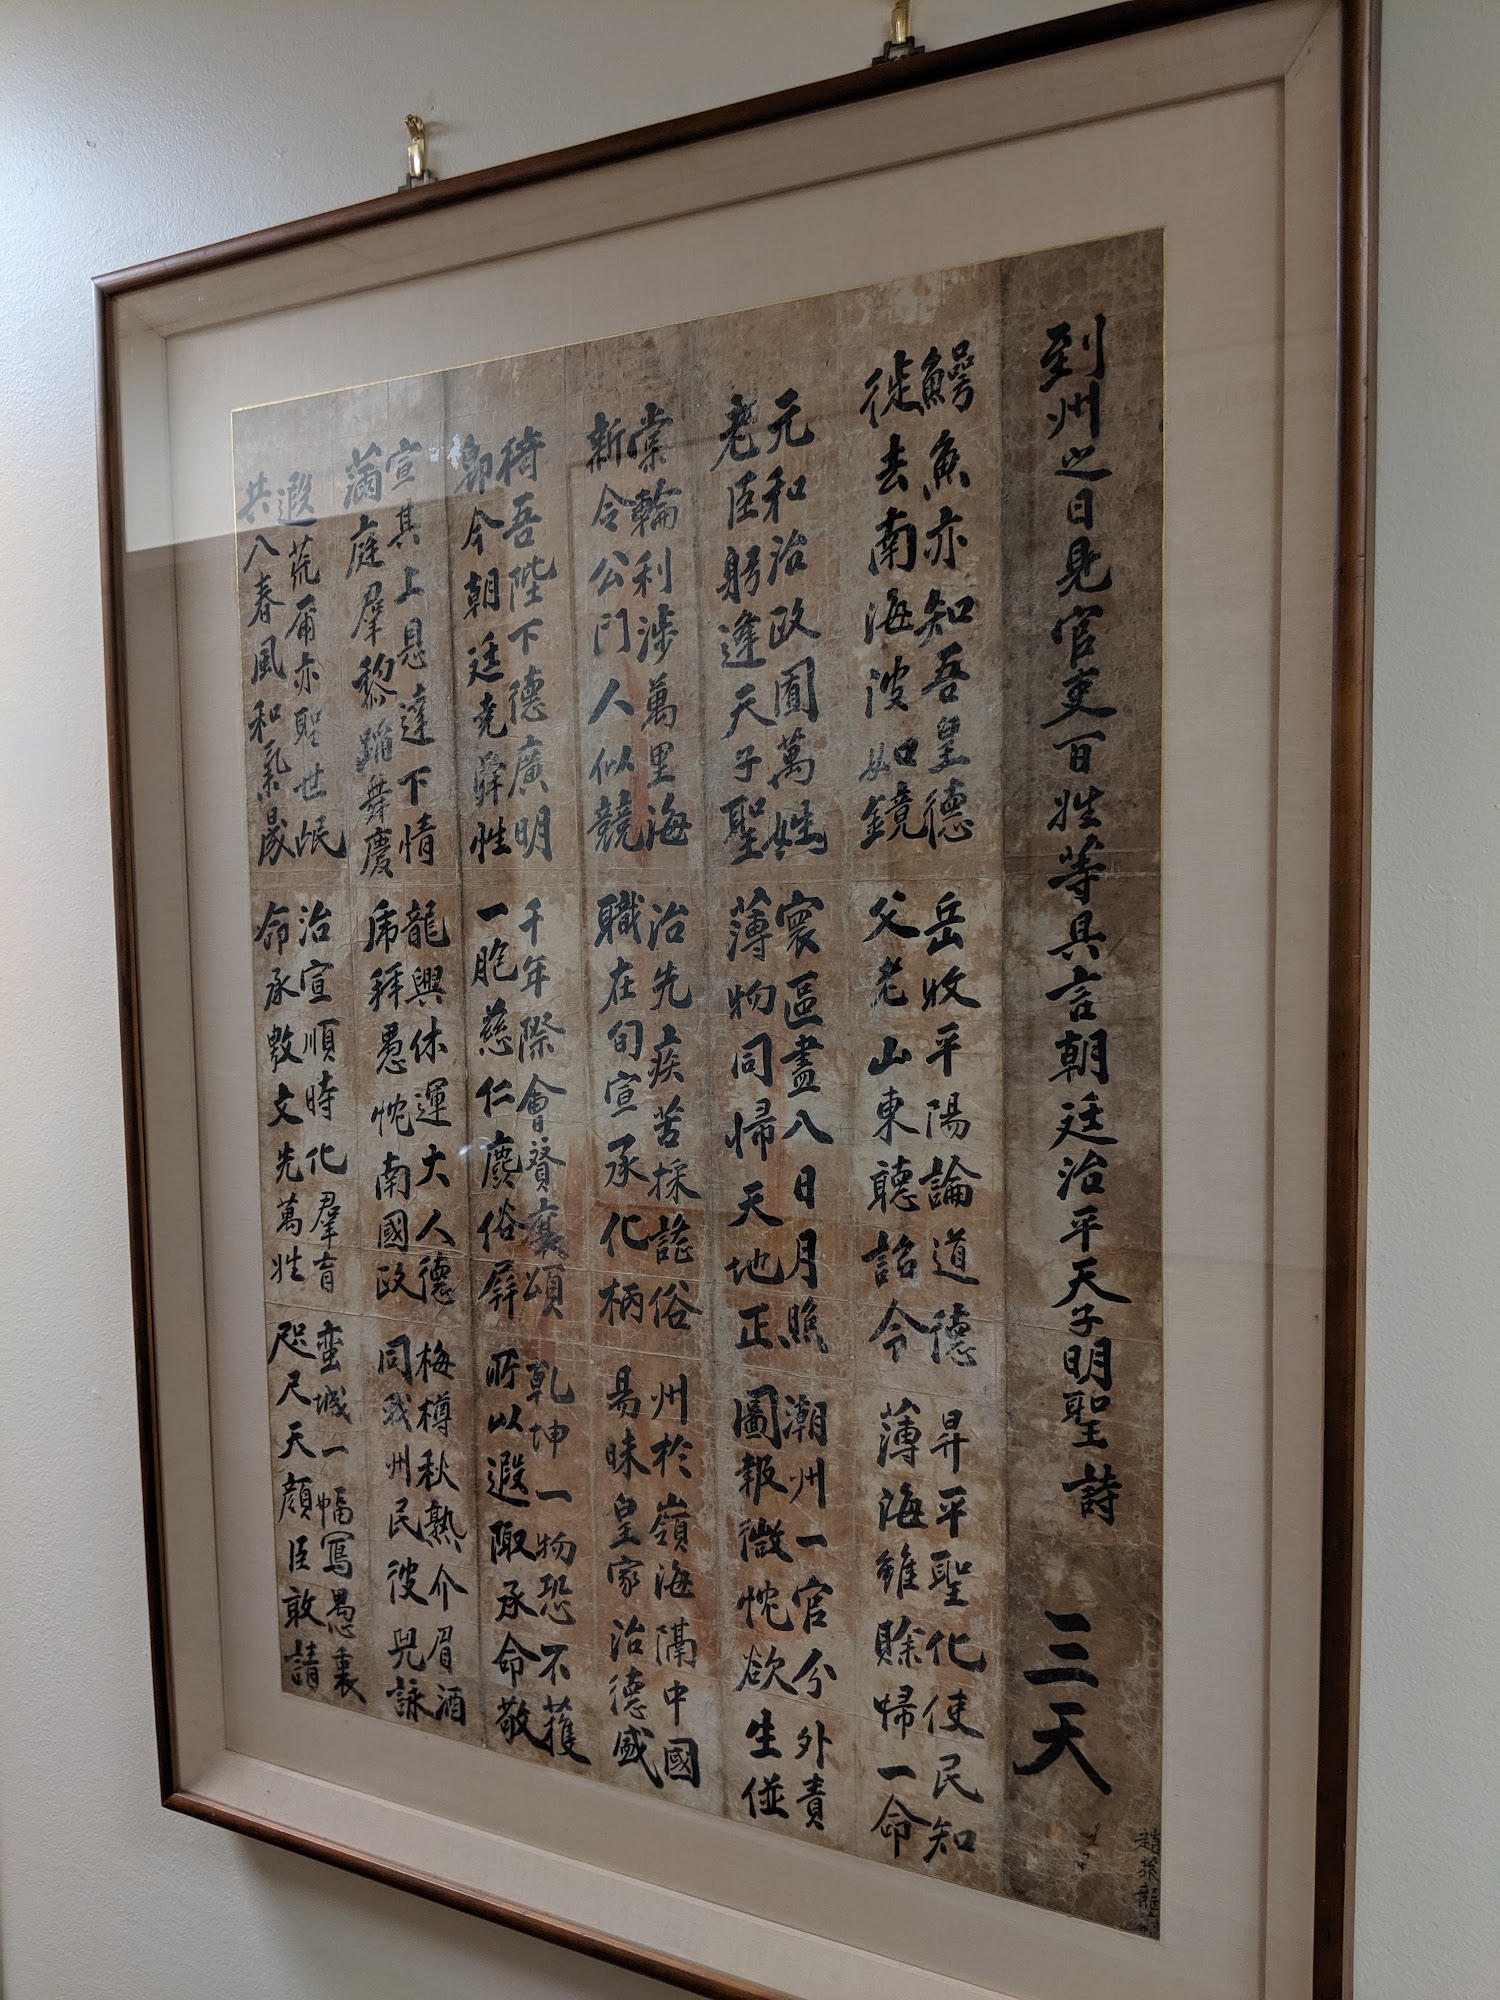 到州之日見官吏百姓等具言朝廷治平天子明聖詩 三天
趙
鰐魚亦知吾皇德 岳牧平陽論道德 昇平聖化使民知
徙去南海波如鏡 父老山東聽詔令 薄海雖賖帰一命
元和治政圓萬姓 寰區盡八日月照 潮州一官分外責
老臣躬逢天子聖 薄物同帰天地正 圖報微忱欲生併
棠輪利涉萬里海 治先疾苦採謠俗 州於嶺海隔中國
新令公門人似競 職在旬宣承化柄 易昧皇家治德盛
猗吾陛下德廣明 千年際會賛襄頌 乾坤一物恐不獲
今朝廷堯舜性 一脃慈仁俗屛 所以遐陬承命敬
宣其上恩達下情 龍興休運大人德 梅樽秋熟介眉酒
滿庭羣黎蹈舞慶 乕拜愚忱南國政 同我州民彼兕詠
遐荒爾亦聖世氓 治宣順時化羣育 蛮城一幅寫愚衷
共八春風和氣晟 命承敷文先萬姓 咫尺天顔臣敢請